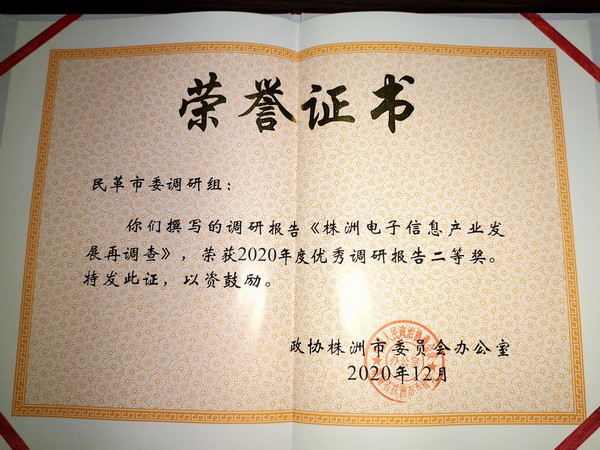 荣誉证书
民革市委调研组：
你们撰写的调研报告《株洲电子信息产业发
展再调查》，荣获2020年度优秀调研报告二等奖。
特发此证，以资鼓励。
政协株洲市委员会办公室
2020年12月